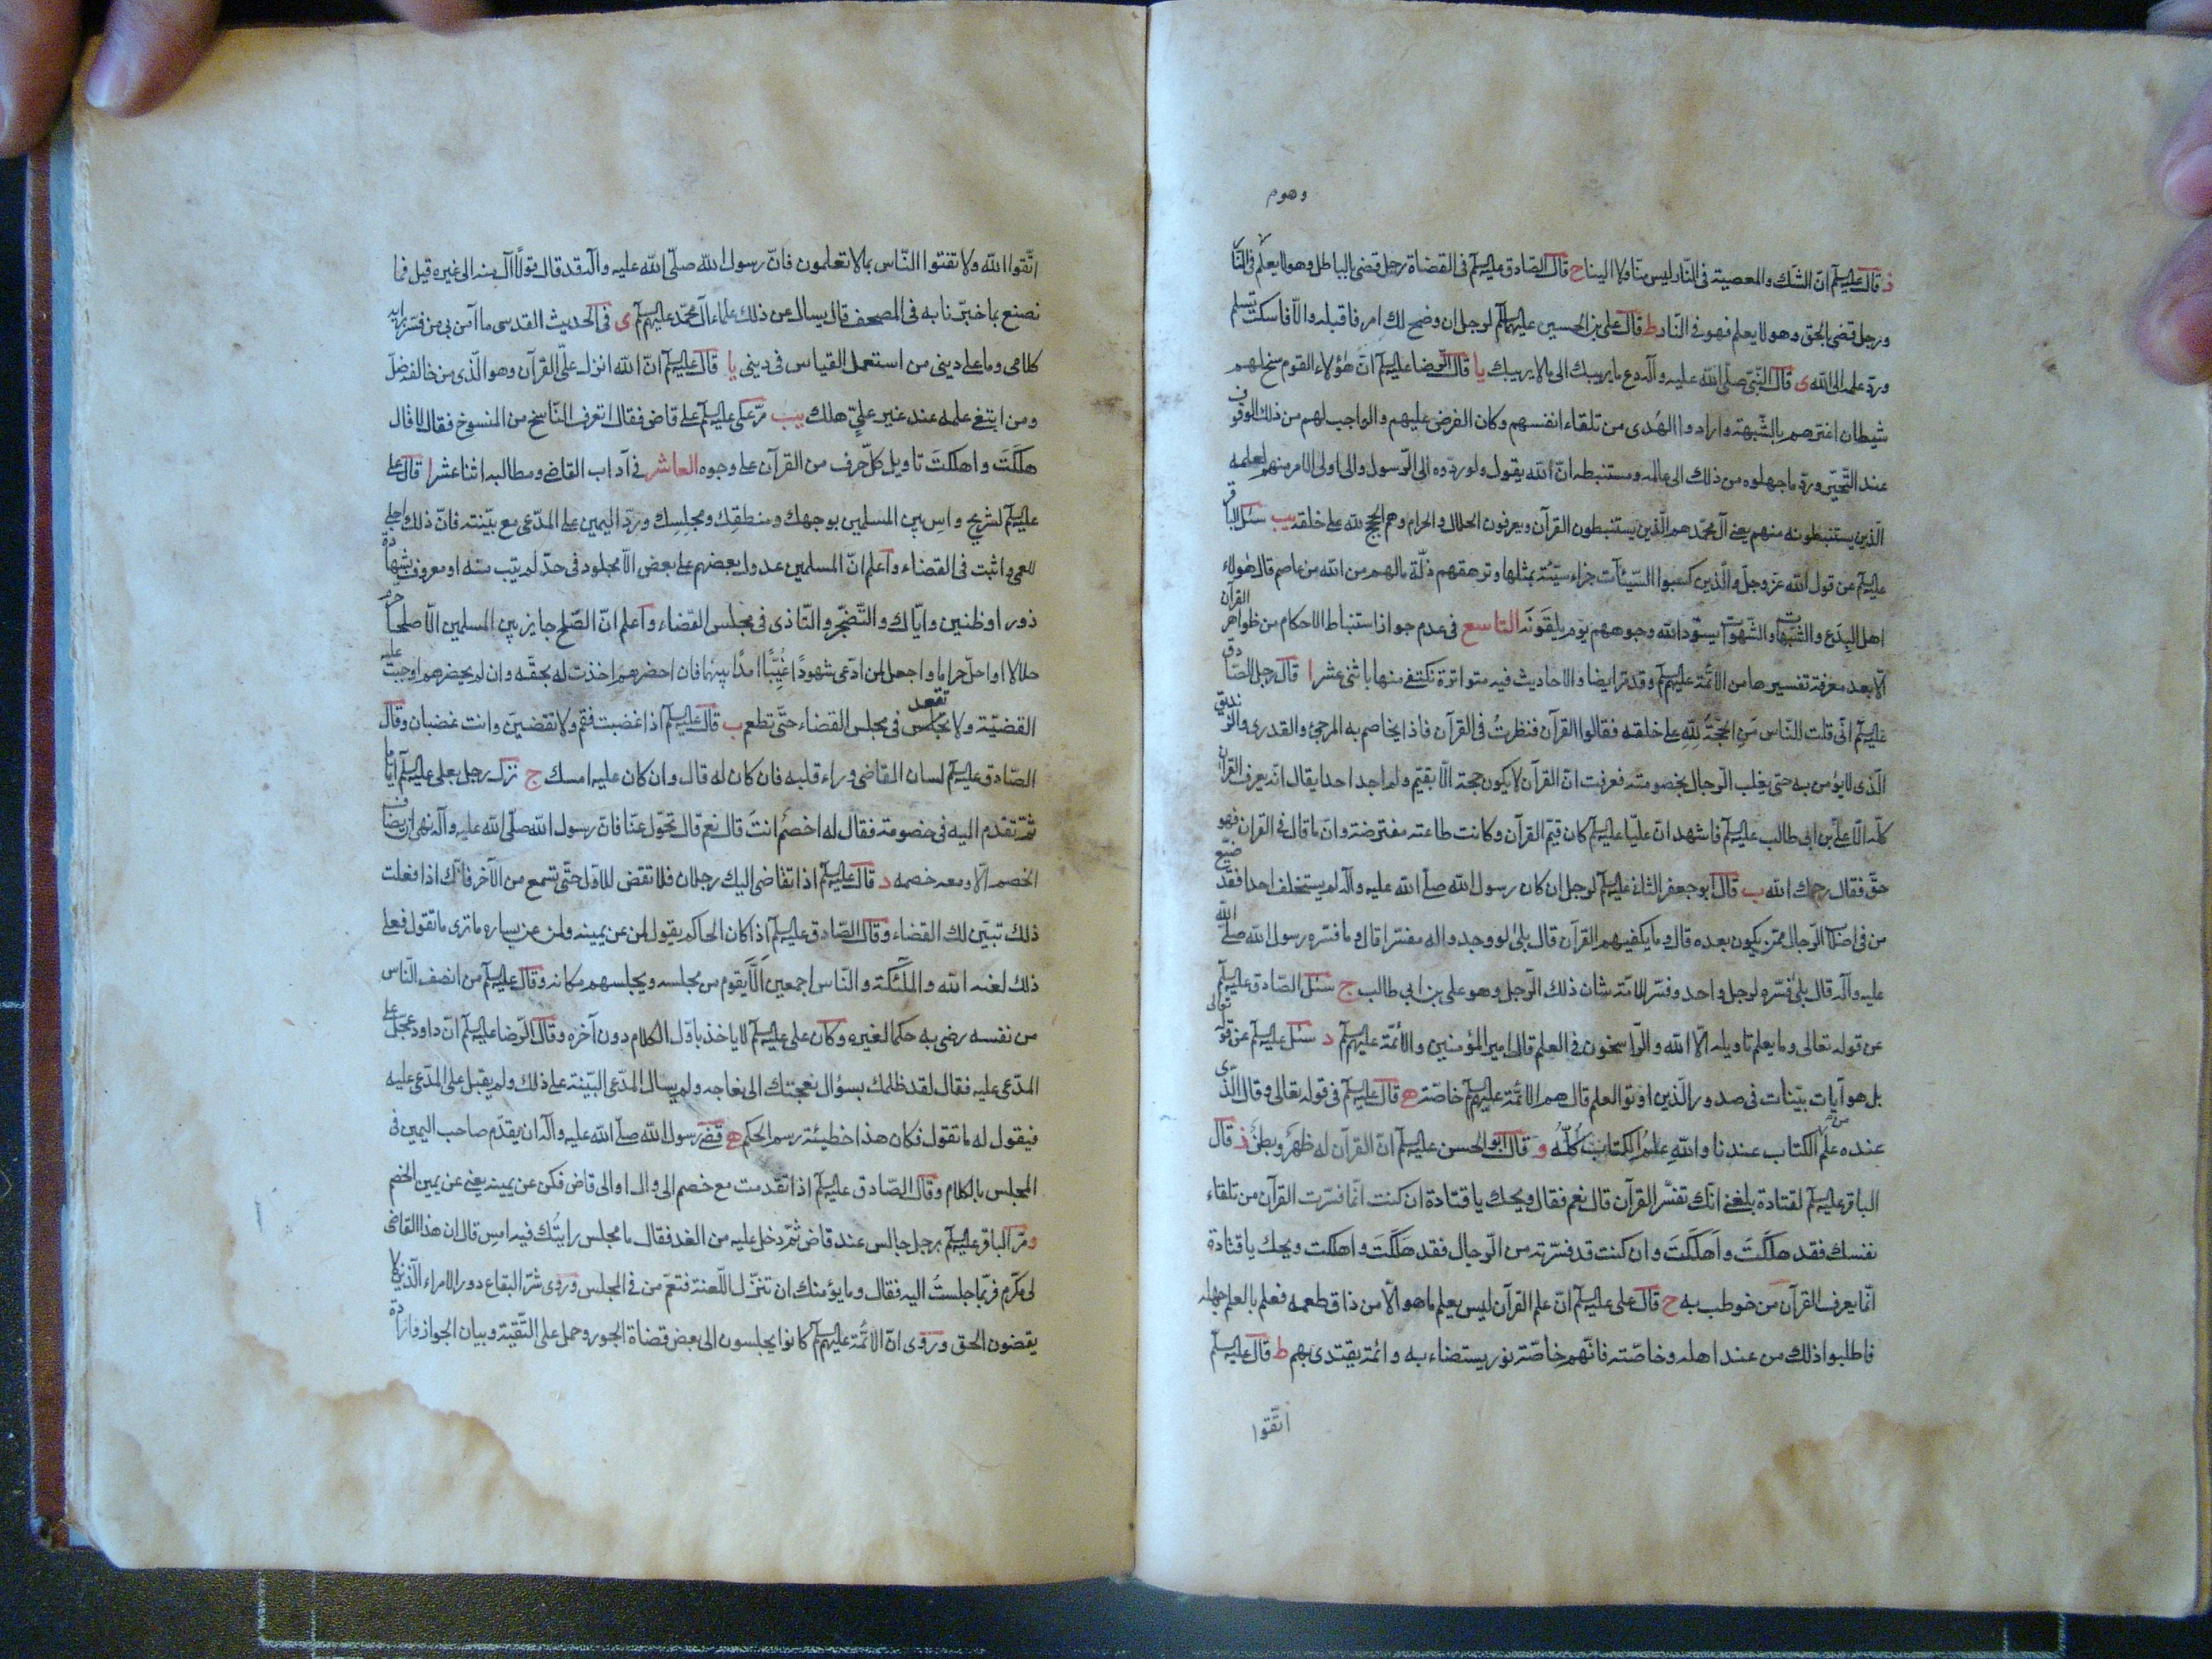 وهوم
ز قال عليه السلم انّ الشك والمعصية فى النّار ليس منّا ولا الينا ح قال الصّادق عليه السلم فى القضاة رجل قضى بالباطل وهو لا يعلم فى النّار
ورجل قضى بالحق وهو لا يعلم فهو فى النّار ط قال على بن الحسين عليهما السلم لرجل ان وضح لك امر فاقبله والّا فاسكت تسلم
وردّ علمه الى الله ى قال النّبىّ صلّى الله عليه وآله دع ما يريبك الى ما لا يريبك يا قال الرّضا عليه السلم انّ هؤلاء القوم سنح لهم
شيطان اغترهم بالشّبهة وارادوا الهُدى من تلقاء انفسهم وكان الفرض عليهم والواجب لهم من ذلك الوقوف
عند التّحيّر وردّ ما جهلوه من ذلك الى عالمه ومستنبطه انّ الله يقول ولو ردّوه الى الرّسول والى اولى الامر منهم لعلمه
الّذين يستنبطونه منهم يعنى آل محمّد هم الّذين يستنبطون القرآن ويعرفون الحلال والحرام وهم الحجج لله على خلقه يب سئل الباقر
عليه السلم عن قول الله عزّ وجلّ والّذين كسبوا السّيّئات جزاء سيّئة بمثلها وترهقهم ذلّة مالهم من الله من عاصم قال هؤلاء
اهل البِدَع والشّبهات والشّهوات يسوّد الله وجوههم يوم يلقَونَه التاسع فى عدم جواز استنباط الاحكام من ظواهر القرآن
الّا بعد معرفة تفسيرها من الائمّة عليهم السلم وقد مرّ ايضا والاحاديث فيه متواترة نكتفى منها باثنى عشر ا قال رجل للصّادق
عليه السلم انّى قلت للنّاس مَنِ الحُجّةُ لِلّهِ على خلقه فقالوا القرآن فنظرتُ فى القرآن فاذا يخاصم به المرجئ والقدرى والزّنديق
الّذى لا يؤمن به حتّى يغلب الرّجال بخصومته فعرفت انّ القرآن لا يكون حجة الّا بقيّم ولم اجد احدا يقال انّه يعرف القرآن
كلّه الّا علىّ بن ابى طالب عليه السلم فاشهد انّ عليّا عليه السلم كان قيّم القرآن وكانت طاعته مفترضة وانّ ما قال فى القرآن فهو
حقّ فقال رحمك الله ب قال ابو جعفر الثانى عليه السلم لرجل ان كان رسول الله صلّى الله عليه وآله لم يستخلف احدا فقد ضيّع
من فى اصلاب الرّجال ممّن يكون بعده قال وما يكفيهم القرآن قال بلى لو وجدوا له مفسّرا قال وما فسّره رسول الله صلّى الله
عليه وآله قال بلى فسّره لرجل واحد وفسّر للامّة شان ذلك الرّجل وهو على بن ابى طالب ج سئل الصّادق عليه السلم
عن قوله تعالى وما يعلم تاويله الّا الله والرّاسخون فى العلم قال امير المؤمنين والائمّة عليهم السلم د سئل عليه السلم عن قوله تعالى
بل هو آيات بيّنات فى صدور الّذين اوتوا العلم قال هم الائمّة عليهم السلم خاصّة ه قال عليه السلم فى قوله تعالى وقال الّذى
عنده علم من الكتاب عندنا والله عِلمُ الكتابِ كُلّهُ و قال ابو الحسن عليه السلم انّ القرآن له ظهرٌ وبطنٌ ز قال
الباقر عليه السلم لقتادة بلغنى انّك تفسّر القرآن قال نعم فقال ويحك يا قتادة ان كنت انّما فسّرت القرآن من تلقاء
نفسك فقد هلكتَ واَهلكتَ وان كنت قد فسّرته من الرّجال فقد هَلَكتَ واهلكت ويحك يا قتادة
انّما يعرف القرآن من خوطب به ح قال على عليه السلم انّ علم القرآن ليس يعلم ما هو الّا من ذاق طعمه فعلم بالعلم جهله
فاطلبوا ذلك من عند اهله وخاصّته فانّهم خاصّة نور يستضاء به وائمة يقتدى بهم ط قال عليه السلم
اتّقوا
اتّقوا الله ولا تفتوا النّاس بما لا تعلمون فانّ رسول الله صلّى الله عليه وآله قد قال قولًا آل منه الى غيره قيل فما
نصنع بما خبّرنا به فى المصحف قال يسال عن ذلك علماء آل محمّد عليهم السلم ى فى الحديث القدسى ما آمن بى من فسّر برايه
كلامى وما على دينى من استعمل القياس فى دينى يا قال عليه السلم انّ الله انزل علىّ القرآن وهو الّذى من خالفه ضلّ
ومن ابتغى علمه عند غير علىٍّ هلك يب مرّ على عليه السلم على قاض فقال اتعرف النّاسخ من المنسوخ فقال لا فقال
هلكتَ واهلكتَ تاويل كلّ حرف من القرآن على وجوه العاشر فى آداب القاضى ومطالبه اثنا عشر ا قال على
عليه السلم لشريح واسِ بين المسلمين بوجهك ومنطقِك ومجلسِك وردّ اليمين على المدّعى مع بيّنته فانّ ذلك اجلى
للعمى واثبت فى القضاء واعلم انّ المسلمين عدول بعضهم على بعض الّا مجلود فى حدّ لم يتب منه او معروف بشهادة
زور او ظنين وايّاك والتّضجّر والتّاذى فى مجلس القضاء واعلم انّ الصّلح جايز بين المسلمين الّا صلحا حرّم
حلالا او احلّ حراما واجعل لمن ادّعى شهودًا غُيّبًا امدًا بينهما فان احضرهم اخذت له بحقّه وان لم يحضرهم اوجبت عليه
القضيّة ولا تجلس تقعد فى مجلس القضاء حتّى تطعم ب قال عليه السلم اذا غضبت فقم ولا تقضينّ وانت غضبان وقال
الصّادق عليه السلم لسان القاضى وراء قلبه فان كان له قال وان كان عليه امسك ج نزل رجل بعلى عليه السلم ايّاما
ثمّ تقدم اليه فى خصومة فقال له اخصم انتَ قال نعم قال تحوّل عنّا فانّ رسول الله صلّى الله عليه وآله نهى ان يضاف
الخصم الّا ومعه خصمه د قال عليه السلم اذا تقاضى اليك رجلان فلا تقض للاوّل حتّى تسمع من الآخر فانّك اذا فعلت
ذلك تبيّن لك القضاء وقال الصّادق عليه السلم اذا كان الحاكم يقول لمن عن يمينه ولمن عن يساره ما ترى ما تقول فعلى
ذلك لعنه الله والملئكة والنّاس اجمعين اَلّا يقوم من مجلسه ويجلسهم مكانه وقال عليه السلم من انصف النّاس
من نفسه رضى به حكما لغيره وكان على عليه السلم لا ياخذ باوّل الكلام دون آخره وقال الرّضا عليه السلم انّ داود عجّل على
المدّعى عليه فقال لقد ظلمك بسؤال نعجتك الى نعاجه ولم يسال المدّعى البيّنة على ذلك ولم يقبل على المدّعى عليه
فيقول له ما تقول فكان هذا خطيئة رسم الحكم ه قضى رسول الله صلّى الله عليه وآله ان يقدّم صاحب اليمين فى
المجلس بالكلام وقال الصّادق عليه السلم اذا تقدّمت مع خصم الى وال او الى قاض فكن عن يمينه يعنى عن يمين الخصم
و مرّ الباقر عليه السلم برجل جالس عند قاض ثمّ دخل عليه من الغد فقال ما مجلس رايتُك فيه امسِ قال ان هذا القاضى
لى مكرّم فربّما جلستُ اليه فقال وما يؤمنك ان تنزل اللّعنة فتعمّ من فى المجلس وروى شرّ البقاع دور الامراء الّذين لا
يقضون الحق وروى انّ الائمّة عليهم السلم كانوا يجلسون الى بعض قضاة الجور وحمل على التّقيّة وبيان الجواز وارادة